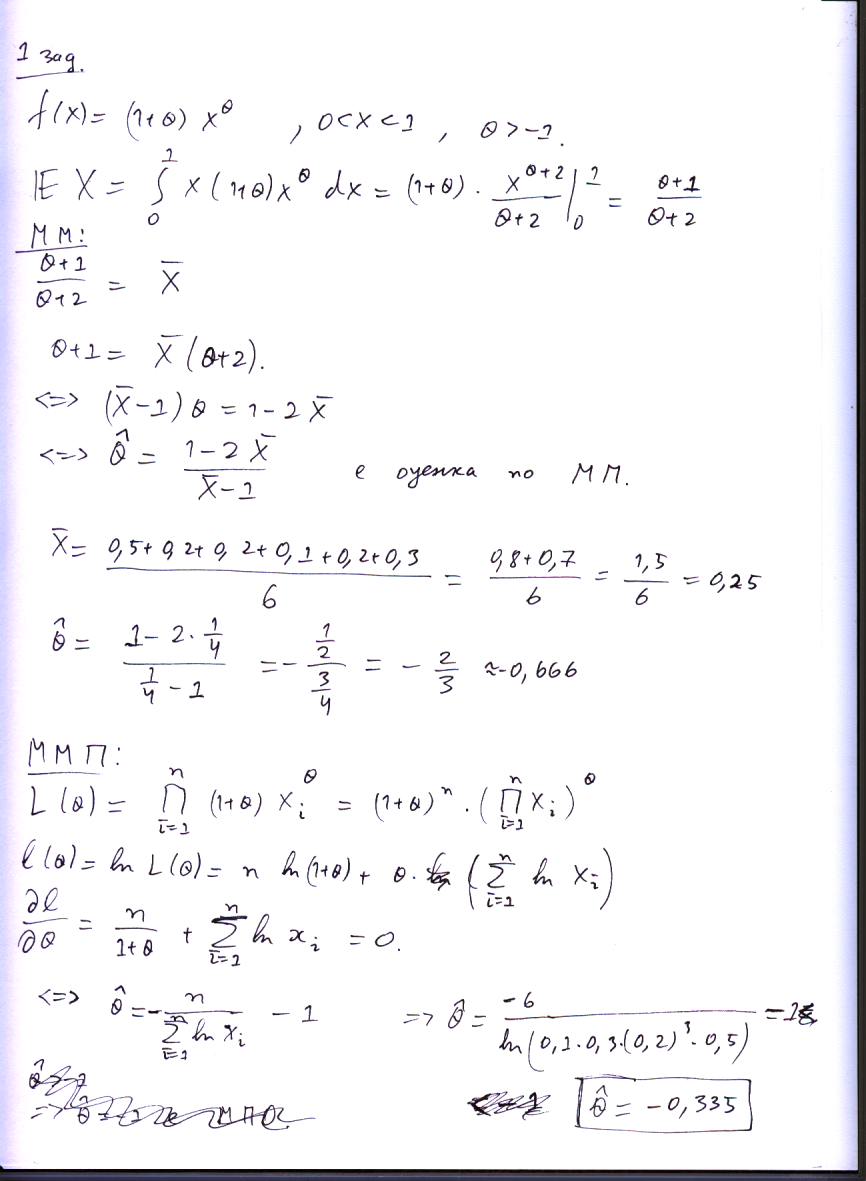 1 зад.
f(x) = (1+θ) x^θ , 0<x<1 , θ>-1.
𝔼 X = ∫₀¹ x (1+θ)x^θ dx = (1+θ) · x^(θ+2)/(θ+2) |₀¹ = (θ+1)/(θ+2)
ММ:
(θ+1)/(θ+2) = X̄
θ+1 = X̄ (θ+2).
<=> (X̄-1) θ = 1-2 X̄
<=> θ̂ = (1-2 X̄)/(X̄-1) е оценка по МП.
X̄ = (0,5+0,2+0,2+0,1+0,2+0,3)/6 = (0,8+0,7)/6 = 1,5/6 = 0,25
θ̂ = (1-2·1/4)/(1/4-1) = -(1/2)/(3/4) = -2/3 ≈-0,666
ММП:
L(θ) = ∏_{i=1}^n (1+θ) X_i^θ = (1+θ)^n · (∏_{i=1}^n X_i)^θ
ℓ(θ) = ln L(θ) = n ln(1+θ) + θ · (∑_{i=1}^n ln X_i)
∂ℓ/∂θ = n/(1+θ) + ∑_{i=1}^n ln x_i = 0.
<=> θ̂ = -n/(∑_{i=1}^n ln X_i) - 1 => θ̂ = -6/ln(0,1·0,3·(0,2)³·0,5) = -1
θ̂ = -0,335